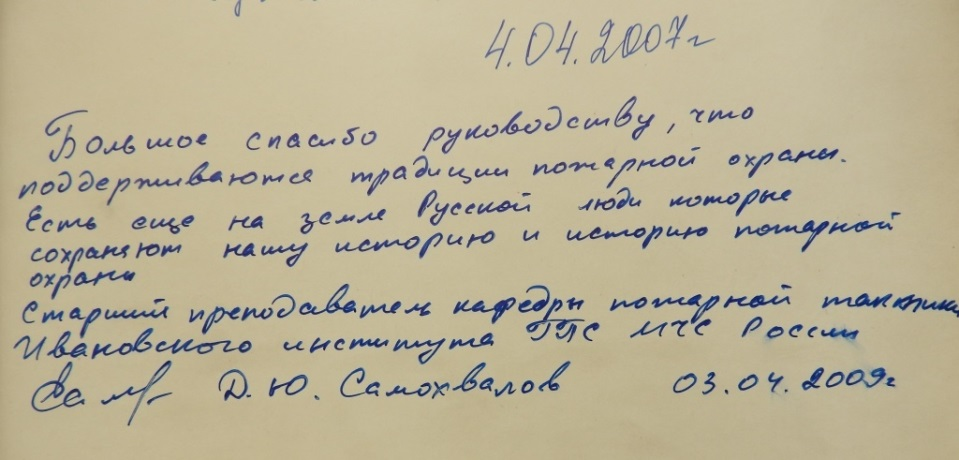 4.04.2007г
Большое спасибо руководству, что
поддерживаются традиции пожарной охраны.
Есть еще на земле Русской люди которые
сохраняют нашу историю и историю пожарной
охраны
Старший преподаватель кафедры пожарной тактики
Ивановского института ГПС МЧС России
Д.Ю. Самохвалов 03.04.2009г